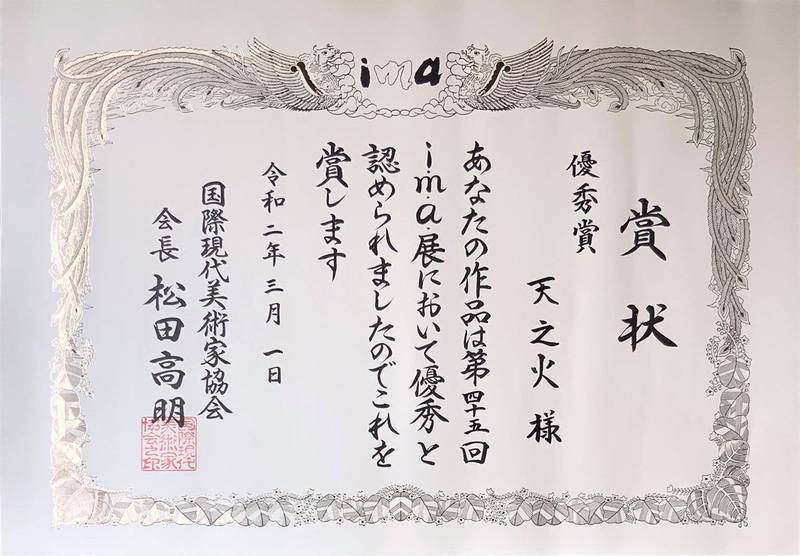 ima
賞状
優秀賞
天之火 様
あなたの作品は第四十五回
i.m.a.展において優秀と
認められましたのでこれを
賞します
令和二年三月一日
国際現代美術家協会
会長 松田高明
国際現代
美術家
協会之印